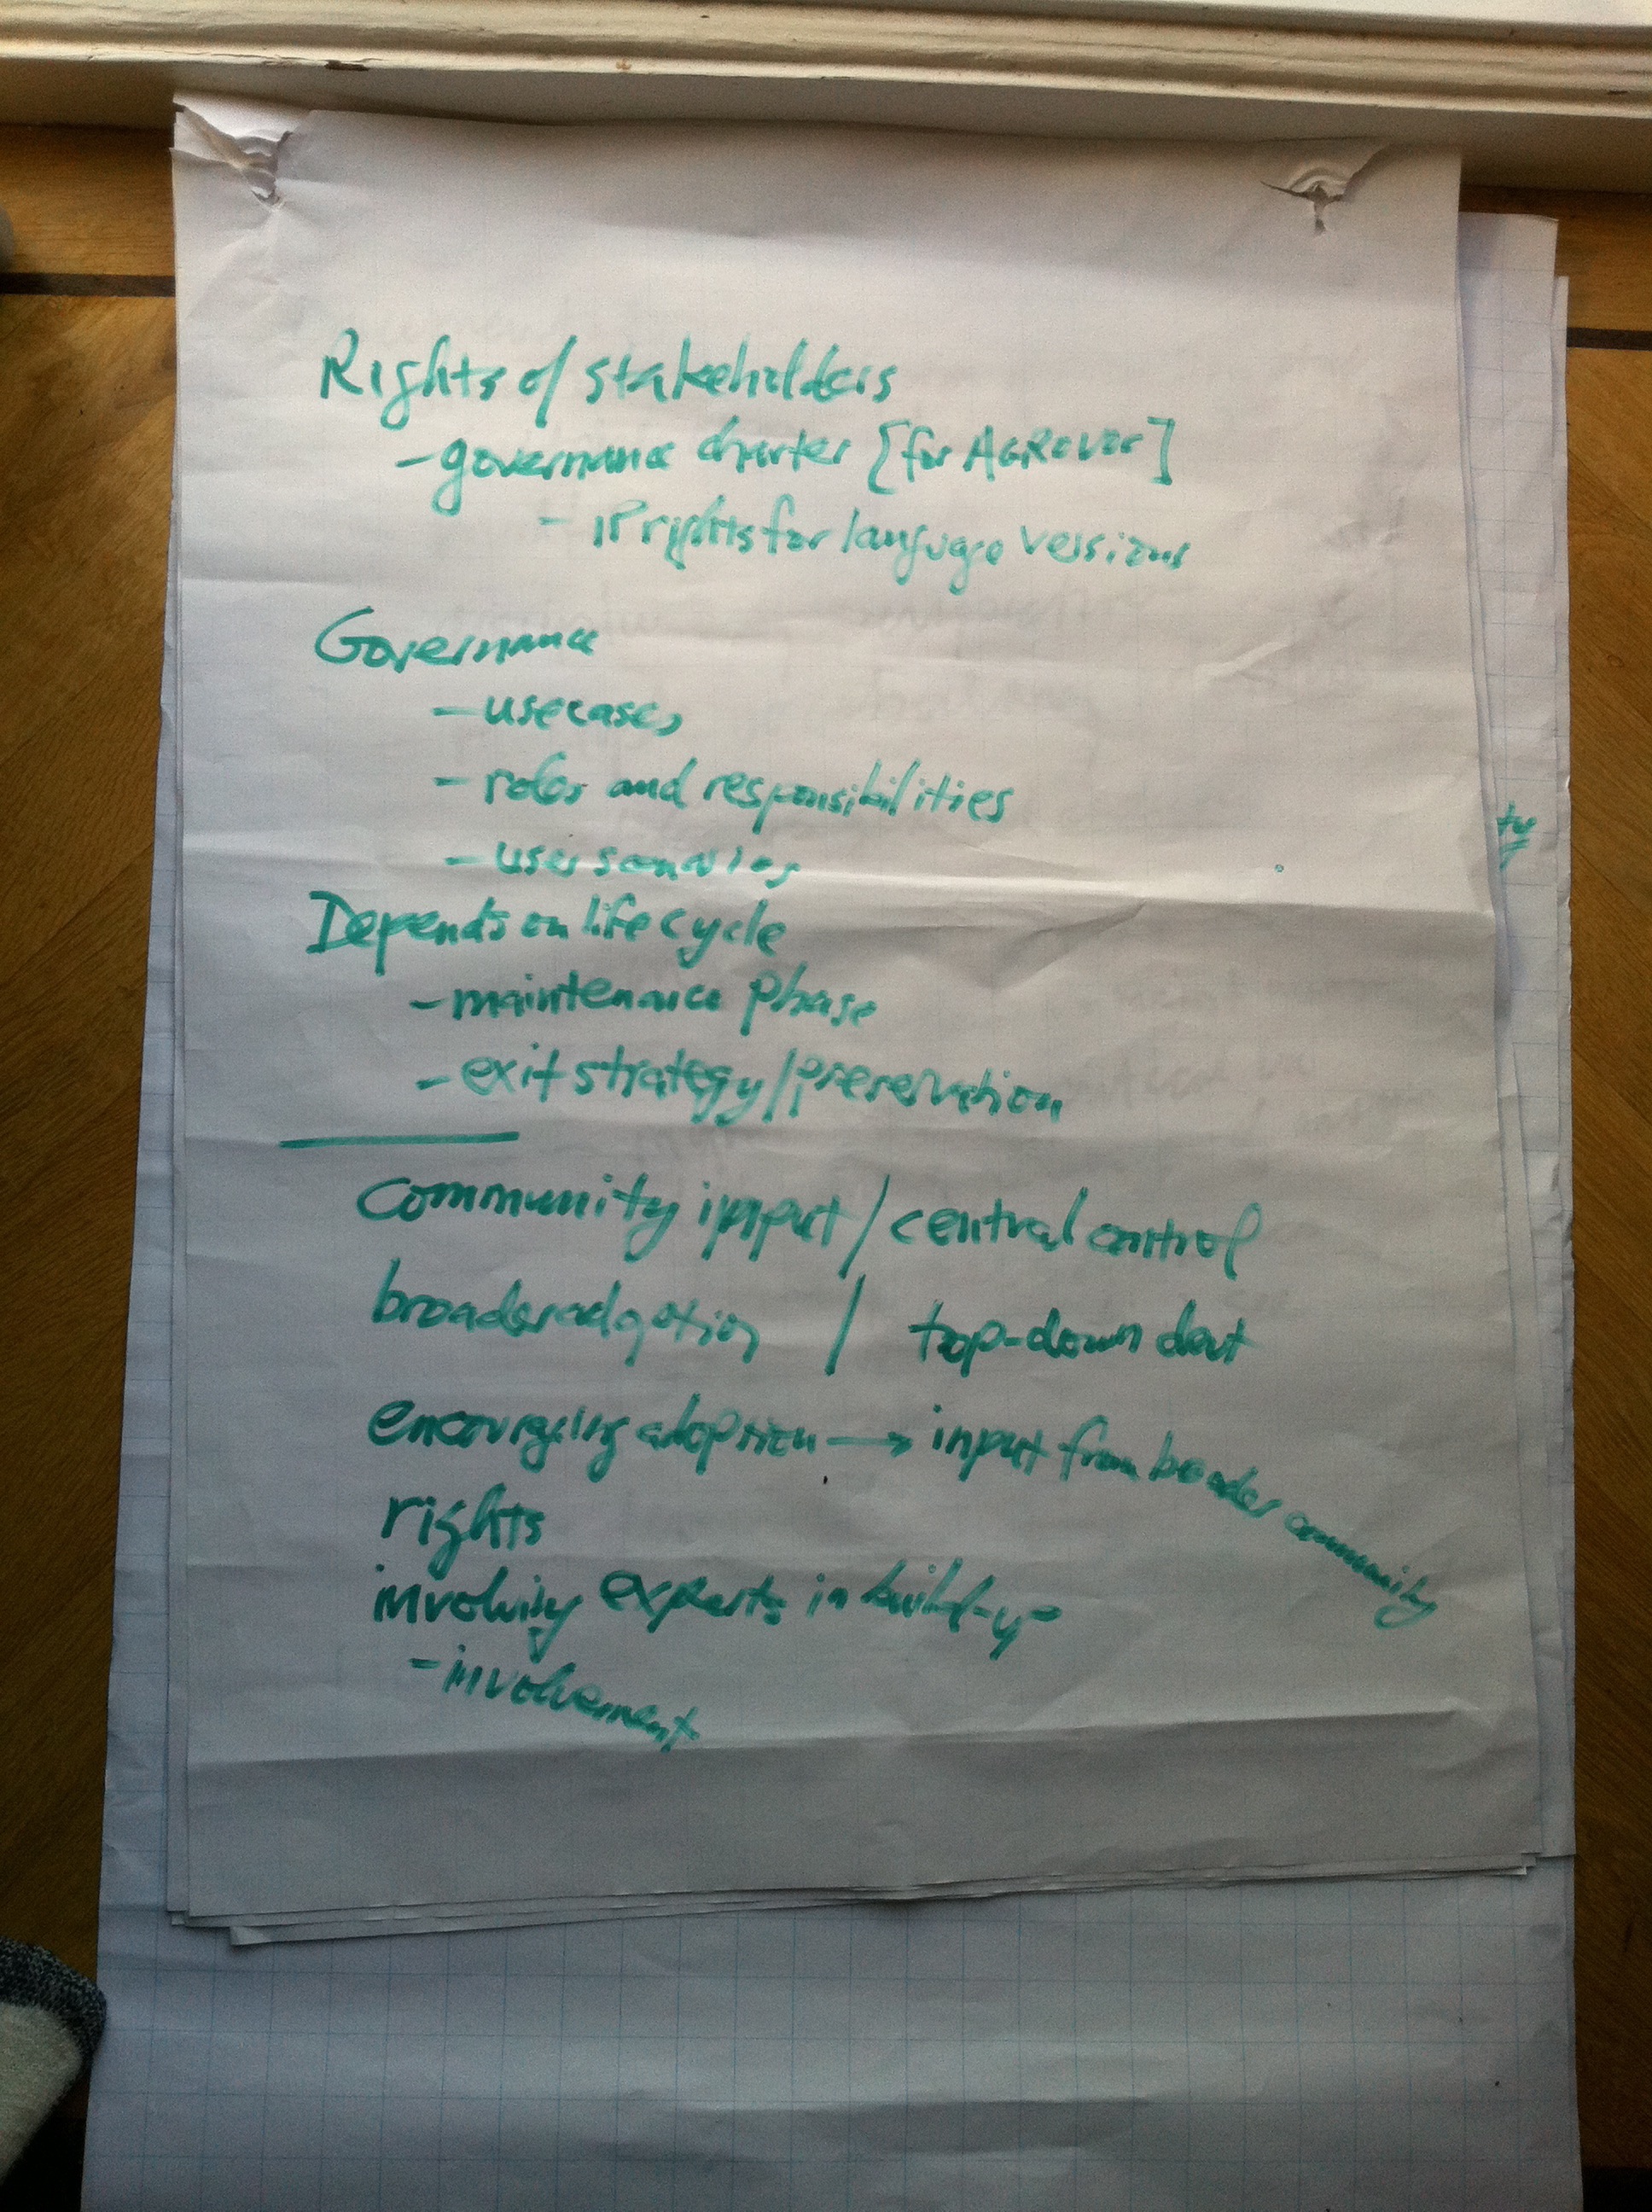 Rights of stakeholders
- governance charter [for AGROVOC]
- IP rights for language versions
Governance
- usecases
- roles and responsibilities
- user scenarios
Depends on life cycle
- maintenance phase
- exit strategy/preservation
ty
community input / central control
broader adoption / top-down devt
encouraging adoption → input from broader community
rights
involving experts in build-up
- involvement